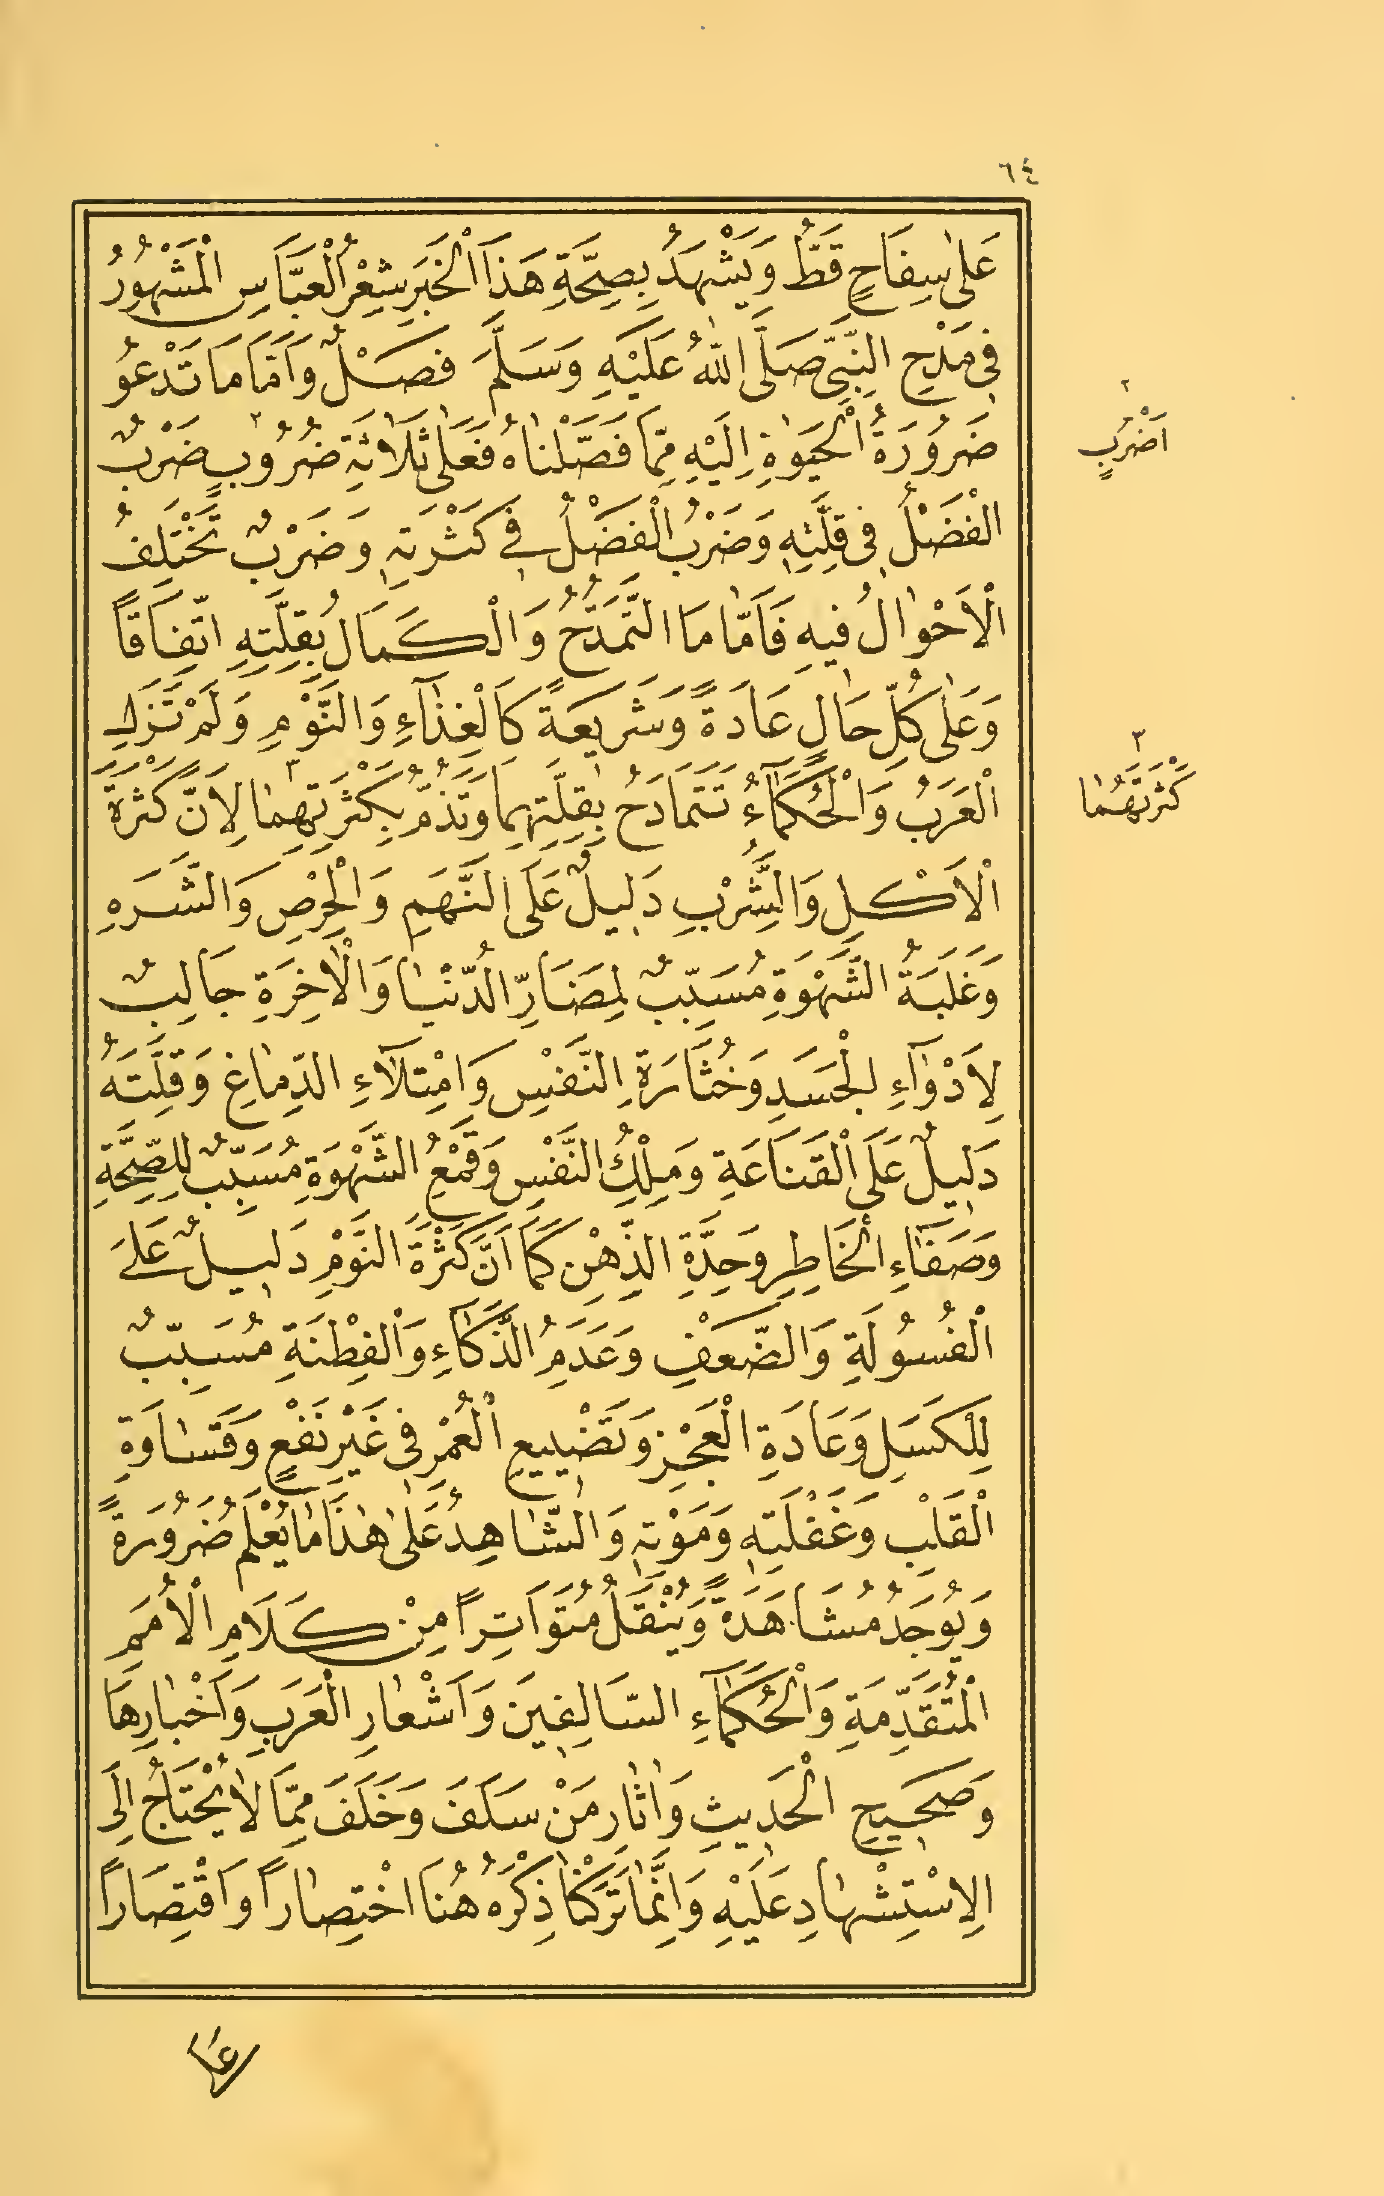 ٦٤
عَلٰى سِفَاحٍ قَطُّ وَيَشْهَدُ بِصِحَّةِ هَذَا الْخَبَرِ شِعْرُ الْعَبَّاسِ الْمَشْهُورُ
فِي مَدْحِ النَّبِيِّ صَلَّى اللّٰهُ عَلَيْهِ وَسَلَّمَ فَصَـْلٌ وَاَمَّا مَا تَدْعُو
ضَرُورَةُ الْحَيٰوةِ اِلَيْهِ مِمَّا فَصَّلْنَاهُ فَعَلٰى ثَلَاثَةِ ضُرُوبٍ٢ ضَرْبٌ
الْفَضْلُ فِي قِلَّتِهِ وَضَرْبٌ الْفَضْلُ فِي كَثْرَتِهِ وَضَرْبٌ تَخْتَلِفُ
الْاَحْوٰالُ فِيهِ فَاَمَّا مَا التَّمَدُّحُ وَالْكَمَالُ بِقِلَّتِهِ اتِّفَاقًا
وَعَلٰى كُلِّ حَالٍ عَادَةً وَشَرِيعَةً كَالْغِذَآءِ وَالنَّوْمِ وَلَمْ تَزَلِ
الْعَرَبُ وَالْحُكَمَآءُ تَتَمَادَحُ بِقِلَّتِهِمَا وَتَذُمُّ بِكَثْرَتِهِمٰا٣ لِاَنَّ كَثْرَةَ
الْاَكْلِ وَالشُّرْبِ دَلِيلٌ عَلَى النَّهَمِ وَالْحِرْصِ وَالشَّرَهِ
وَغَلَبَةُ الشَّهْوَةِ مُسَبِّبٌ لِمَضَارِّ الدُّنْيٰا وَالْاٰخِرَةِ جَالِبٌ
لِاَدْوَآءِ الْجَسَدِ وَخُثَارَةِ النَّفْسِ وَامْتِلَآءِ الدِّمٰاغِ وَقِلَّتَهُ
دَلِيلٌ عَلَى الْقَنَاعَةِ وَمِلْكِ النَّفْسِ وَقَمْعُ الشَّهْوَةِ مُسَبِّبٌ لِلصِّحَّةِ
وَصَفَآءِ الْخَاطِرِ وَحِدَّةِ الذِّهْنِ كَمَا اَنَّ كَثْرَةَ النَّوْمِ دَلِيلٌ عَلَى
الْفُسُولَةِ وَالضَّعْفِ وَعَدَمِ الذَّكَآءِ وَالْفِطْنَةِ مُسَبِّبٌ
لِلْكَسَلِ وَعَادَةِ الْعَجْزِ وَتَضْيِيعِ الْعُمْرِ فِي غَيْرِ نَفْعٍ وَقَسٰاوَةِ
الْقَلْبِ وَغَفْلَتِهِ وَمَوْتِهِ وَالشّٰاهِدُ عَلٰى هٰذَا مٰا يُعْلَمُ ضَرُورَةً
وَيُوجَدُ مُشَاهَدَةً وَيُنْقَلُ مُتَوَاتِرًا مِنْ كَلَامِ الْاُمَمِ
الْمُتَقَدِّمَةِ وَالْحُكَمَآءِ السَّالِفِينَ وَاَشْعٰارِ الْعَرَبِ وَاَخْبٰارِهَا
وَصَحِيحِ الْحَدِيثِ وَاٰثٰارِ مَنْ سَلَفَ وَخَلَفَ مِمَّا لَا يُحْتَاجُ اِلَى
الِاسْتِشْهَادِ عَلَيْهِ وَاِنَّمٰا تَرَكْنٰا ذِكْرَهُ هُنَا اخْتِصٰارًا وَاقْتِصَارًا
٢
اَضْرُبٍ
٣
كَثْرَتَهُمٰا
عَلَى